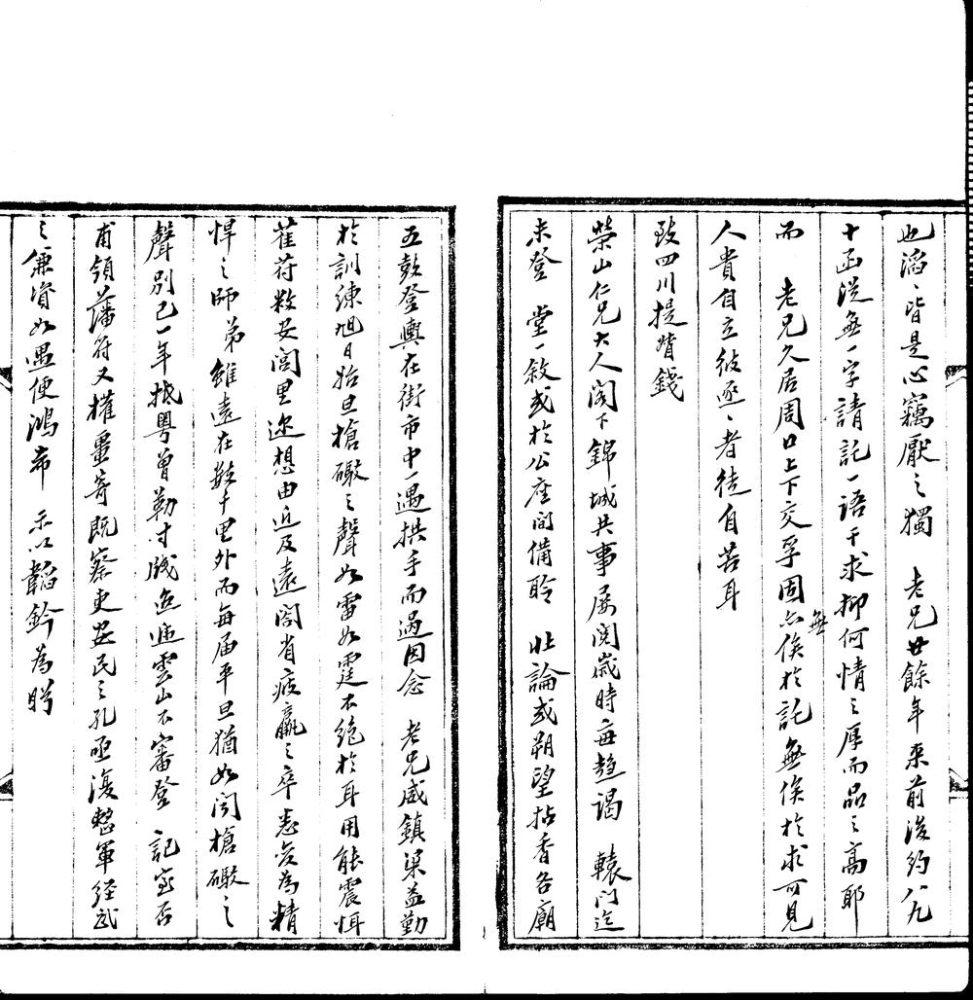 也滔、皆是心竊厭之獨　老兄廿餘年來前後約八九
十函從無一字請託一語干求抑何情之厚而品之高耶
而　老兄久居周口上下交孚固亦無俟於託無俟於求可見
人貴自立彼逐、者徒自苦耳
致四川提督錢
榮山仁兄大人閣下錦城共事屢閱歲時每趨謁　轅門迄
未登　堂一敘或於公座間備聆　壯論或朔望拈香各廟
五鼓登輿在街市中一遇拱手而過因念　老兄威鎮梁益勤
於訓練旭日始旦槍礮之聲如雷如霆不絕於耳用能震懾
萑苻救安閭里迩想由近及遠閤省疲羸之卒悉變為精
悍之師弟雖遠在數千里外而每届平旦猶如聞槍礮之
聲別已一年抵粵曾勒寸牋迢遞雲山不審登　記室否
甫領藩符又權畺寄既察吏安民之孔亟復整軍經武
之兼資如遇便鴻希　示以韜鈐為盼